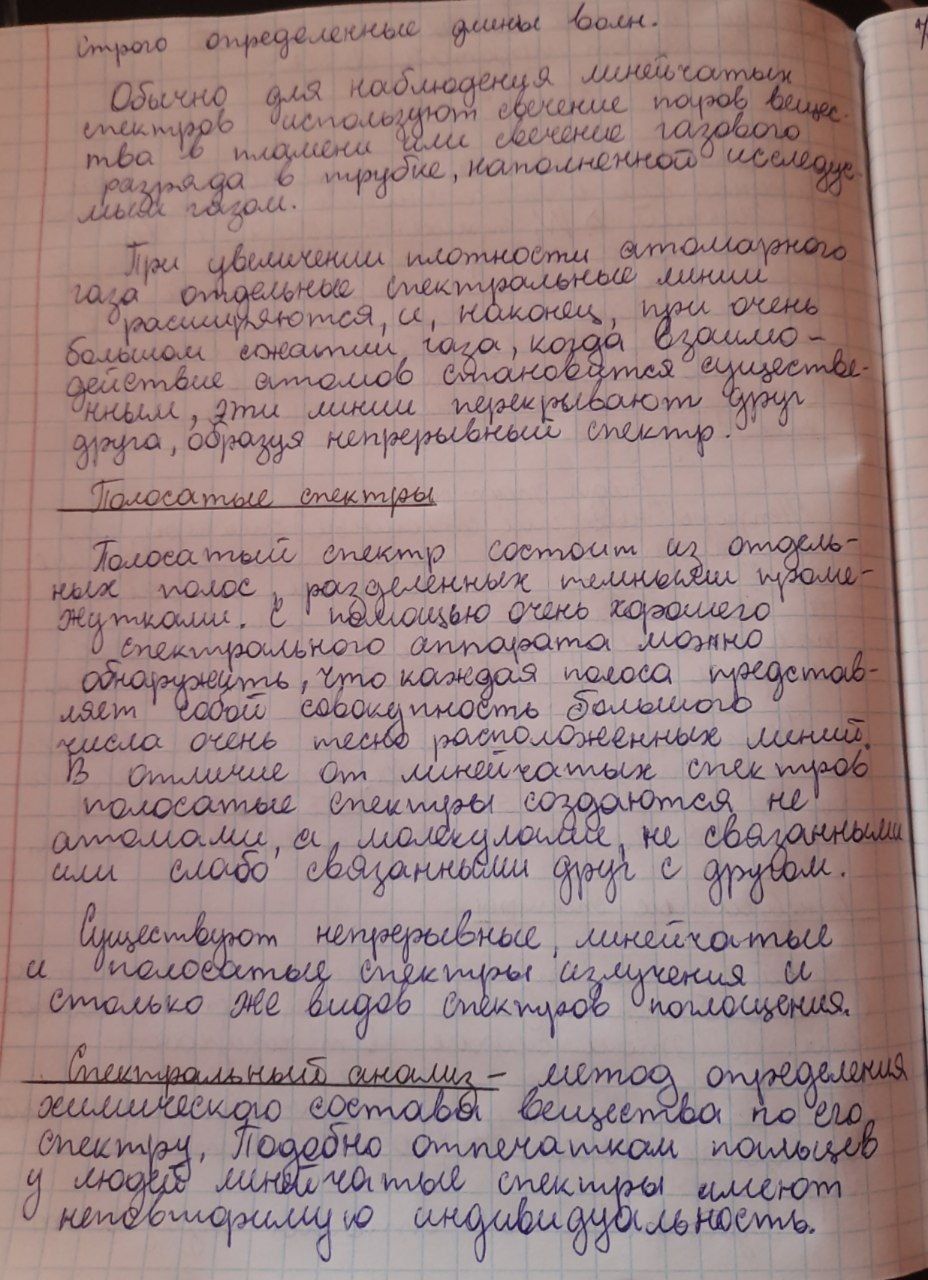 строго определенные длины волн.
Обычно для наблюдения линейчатых
спектров используют свечение паров вещес-
тва в пламени или свечение газового
разряда в трубке, наполненной исследуе-
мым газом.
При увеличении плотности атомарного
газа отдельные спектральные линии
расширяются, и, наконец, при очень
большом сжатии газа, когда взаимо-
действие атомов становится существе-
нным, эти линии перекрывают друг
друга, образуя непрерывный спектр.
Полосатые спектры
Полосатый спектр состоит из отдель-
ных полос, разделенных темными проме-
жутками. С помощью очень хорошего
спектрального аппарата можно
обнаружить, что каждая полоса представ-
ляет собой совокупность большого
числа очень тесно расположенных линий.
В отличие от линейчатых спектров
полосатые спектры создаются не
атомами, а молекулами, не связанными
или слабо связанными друг с другом.
Существуют непрерывные, линейчатые
и полосатые спектры излучения и
столько же видов спектров поглощения.
Спектральный анализ – метод определения
химического состава вещества по его
спектру. Подобно отпечаткам пальцев
у людей линейчатые спектры имеют
неповторимую индивидуальность.